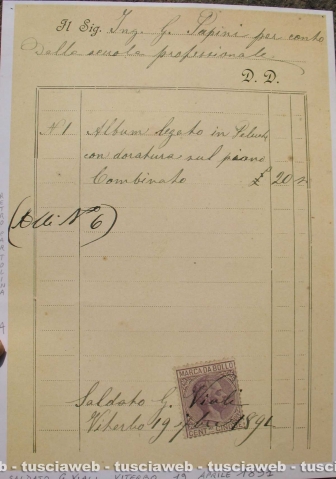 Il Sig. Ing. G. Papini per conto
della scuola professionale
D. D.
N. 1 Album legato in Peluch
con doratura sul piano
Combinato £ 20
(Alli N° 6)
MARCA DA BOLLO
CENT.
Saldato G.
Viterbo 19 1891
SALDATO G. VITERBO 19 APRILE
tusciaweb - tusciaweb - tusciaweb - tusciaweb